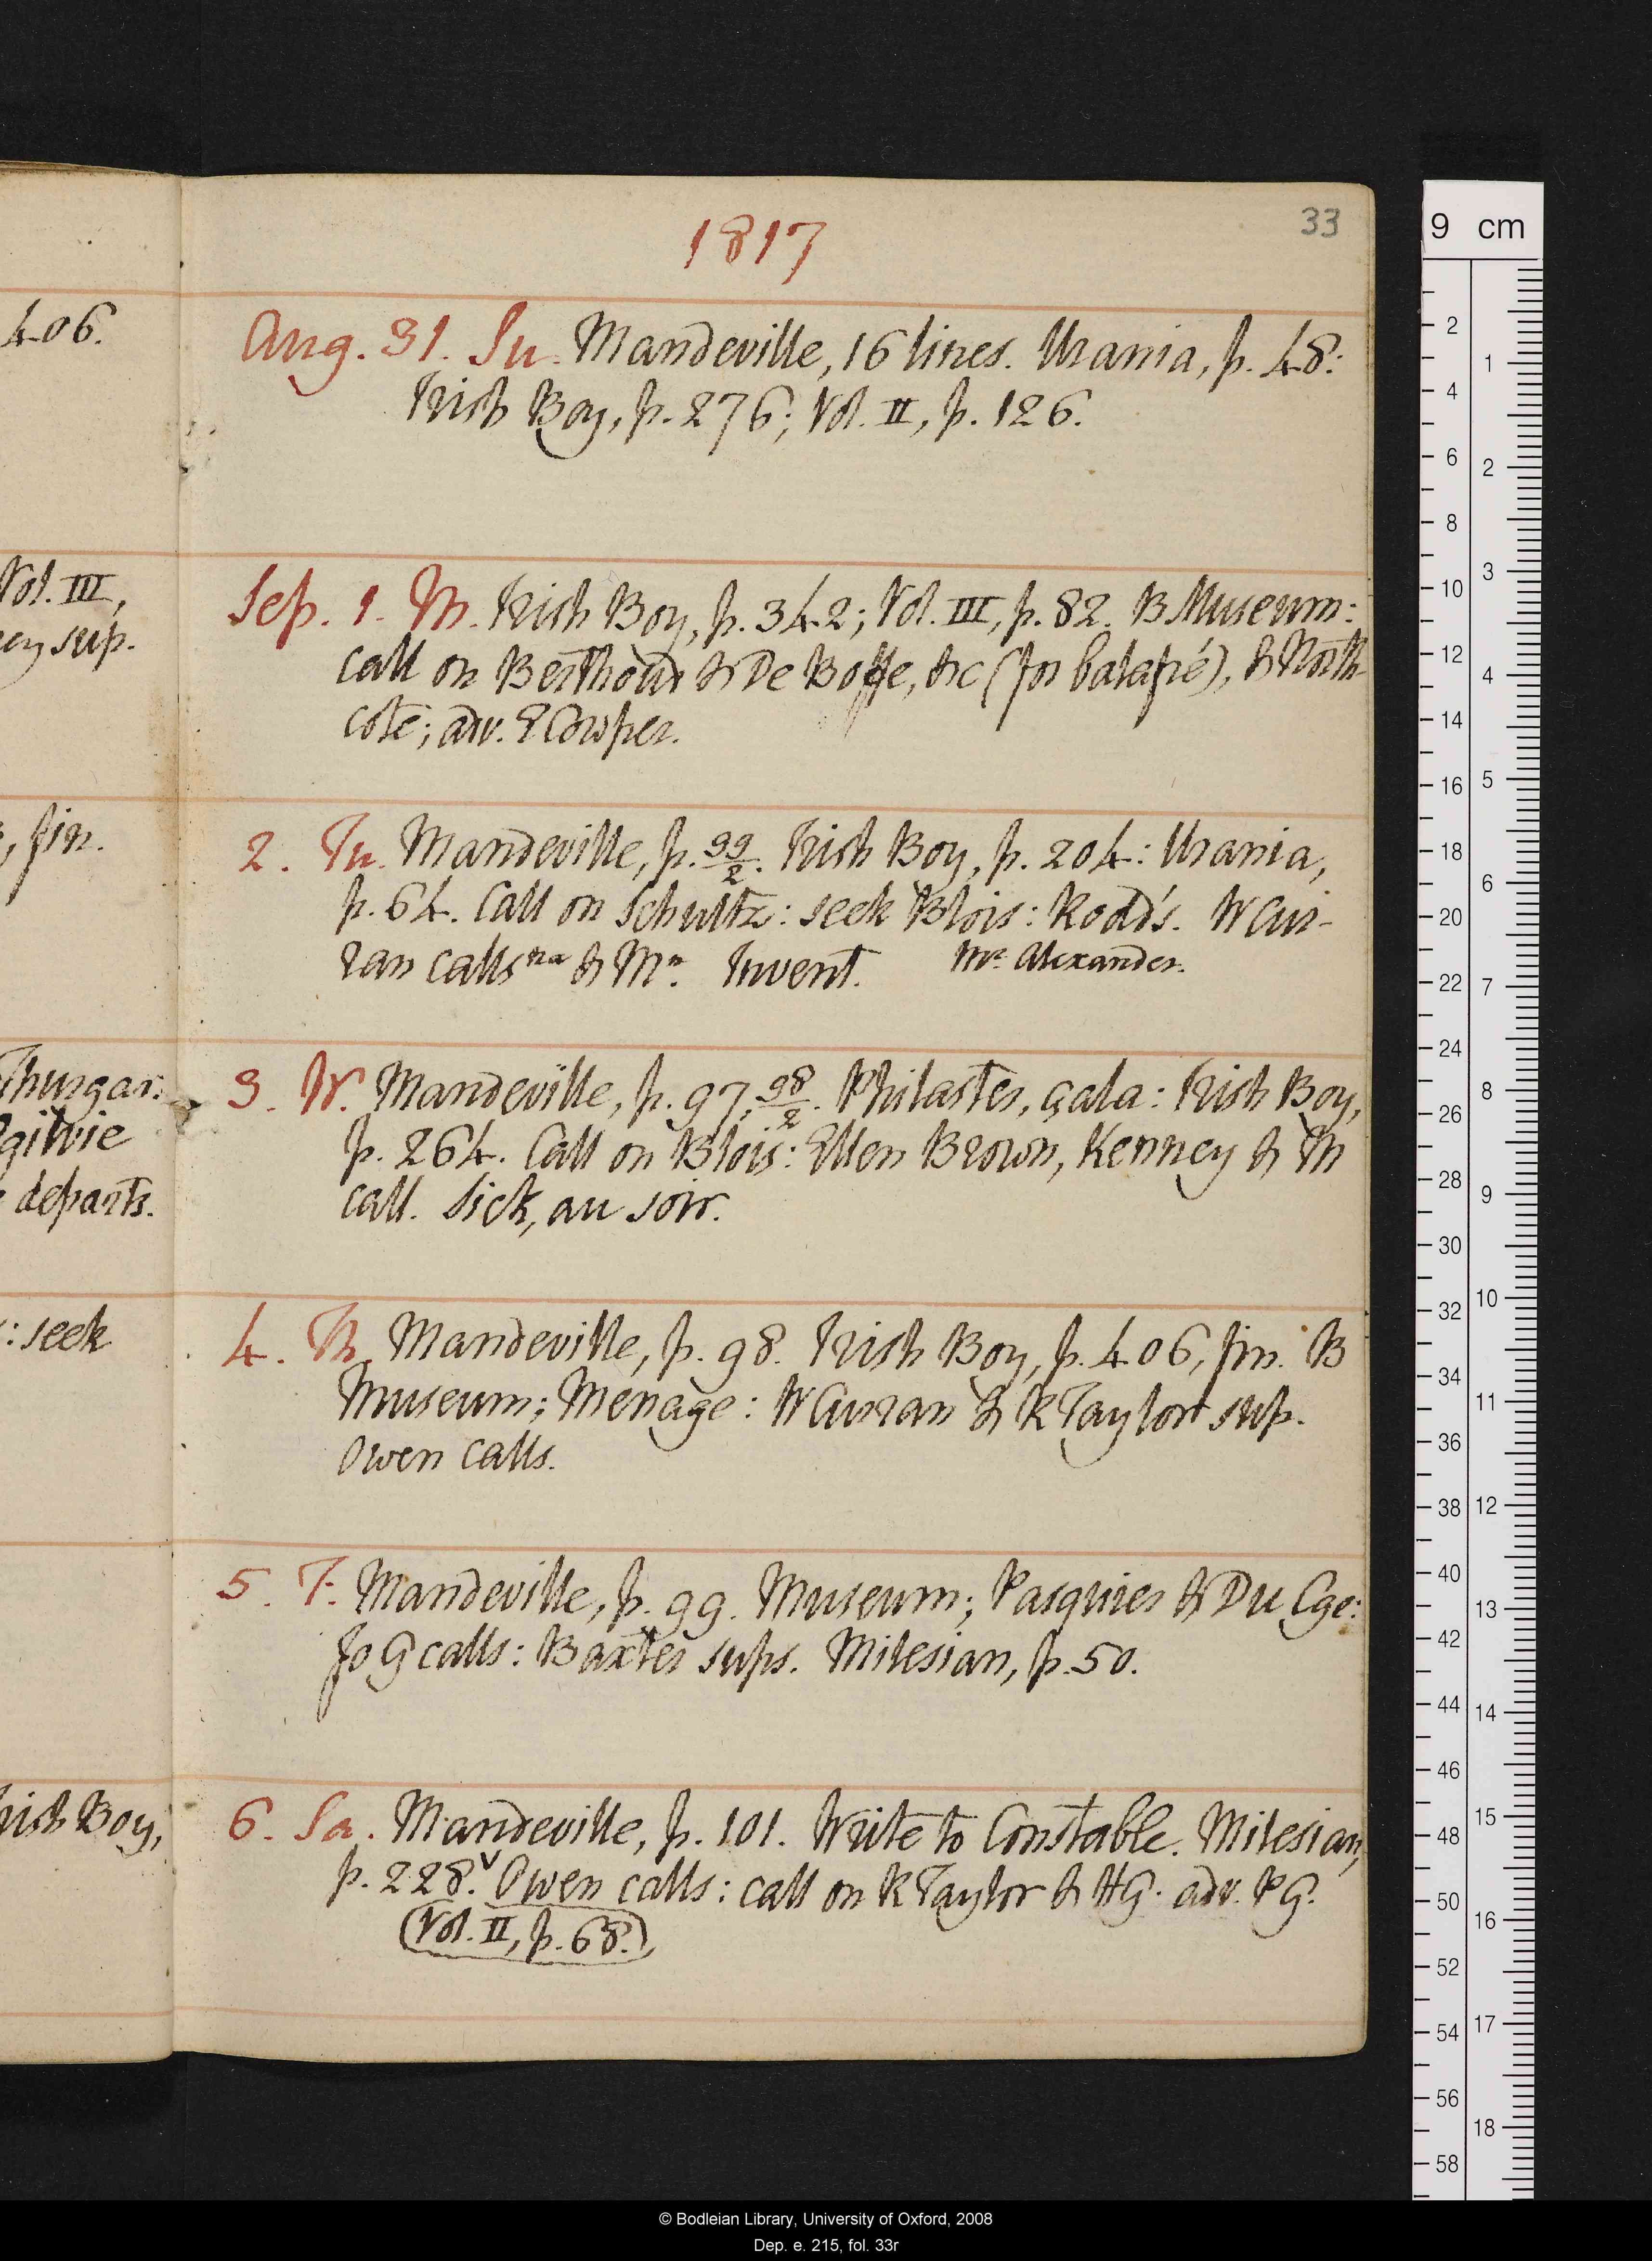 1817
33
406.
Vol. III,
ey sup.
, fin.
Thurgar:
gilvie
departs.
: seek
rish Boy,
Aug. 31. Su. Mandeville, 16 lines. Urania, p. 48:
Irish Boy, p. 276; Vol. II, p. 126.
Sep. 1. M. Irish Boy, p. 342; Vol. III, p. 82. B Museum:
call on Berthoud & De Boffe, &c (for balafré), & North-
cote; adv. E Cowper.
2. Tu. Mandeville, p. 99/2. Irish Boy, p. 204: Urania,
p. 64. Call on Schultz: seek Blois: Rodd's. W Cur-
ran calls na & Mn. Invent. Mrs Alexander.
3. W. Mandeville, p. 97, 98/2. Philaster, çala: Irish Boy,
p. 264. Call on Blois: Ellen Brown, Kenney & M
call. Sick, au soir.
4. Th. Mandeville, p. 98. Irish Boy, p. 406, fin. B
Museum; Menage: W Curran & R Taylor sup.
Owen calls.
5. F. Mandeville, p. 99. Museum; Pasquier & Du Cge:
Jo G calls: Baxter sups. Milesian, p. 50.
6. Sa. Mandeville, p. 101. Write to Constable. Milesian,
p. 228. Owen calls: call on R Taylor & HG. adv. PG.
Vol. II, p. 68.
9 cm
2 4 6 8 10 12 14 16 18 20 22 24 26 28 30 32 34 36 38 40 42 44 46 48 50 52 54 56 58
1 2 3 4 5 6 7 8 9 10 11 12 13 14 15 16 17 18
© Bodleian Library, University of Oxford, 2008
Dep. e. 215, fol. 33r